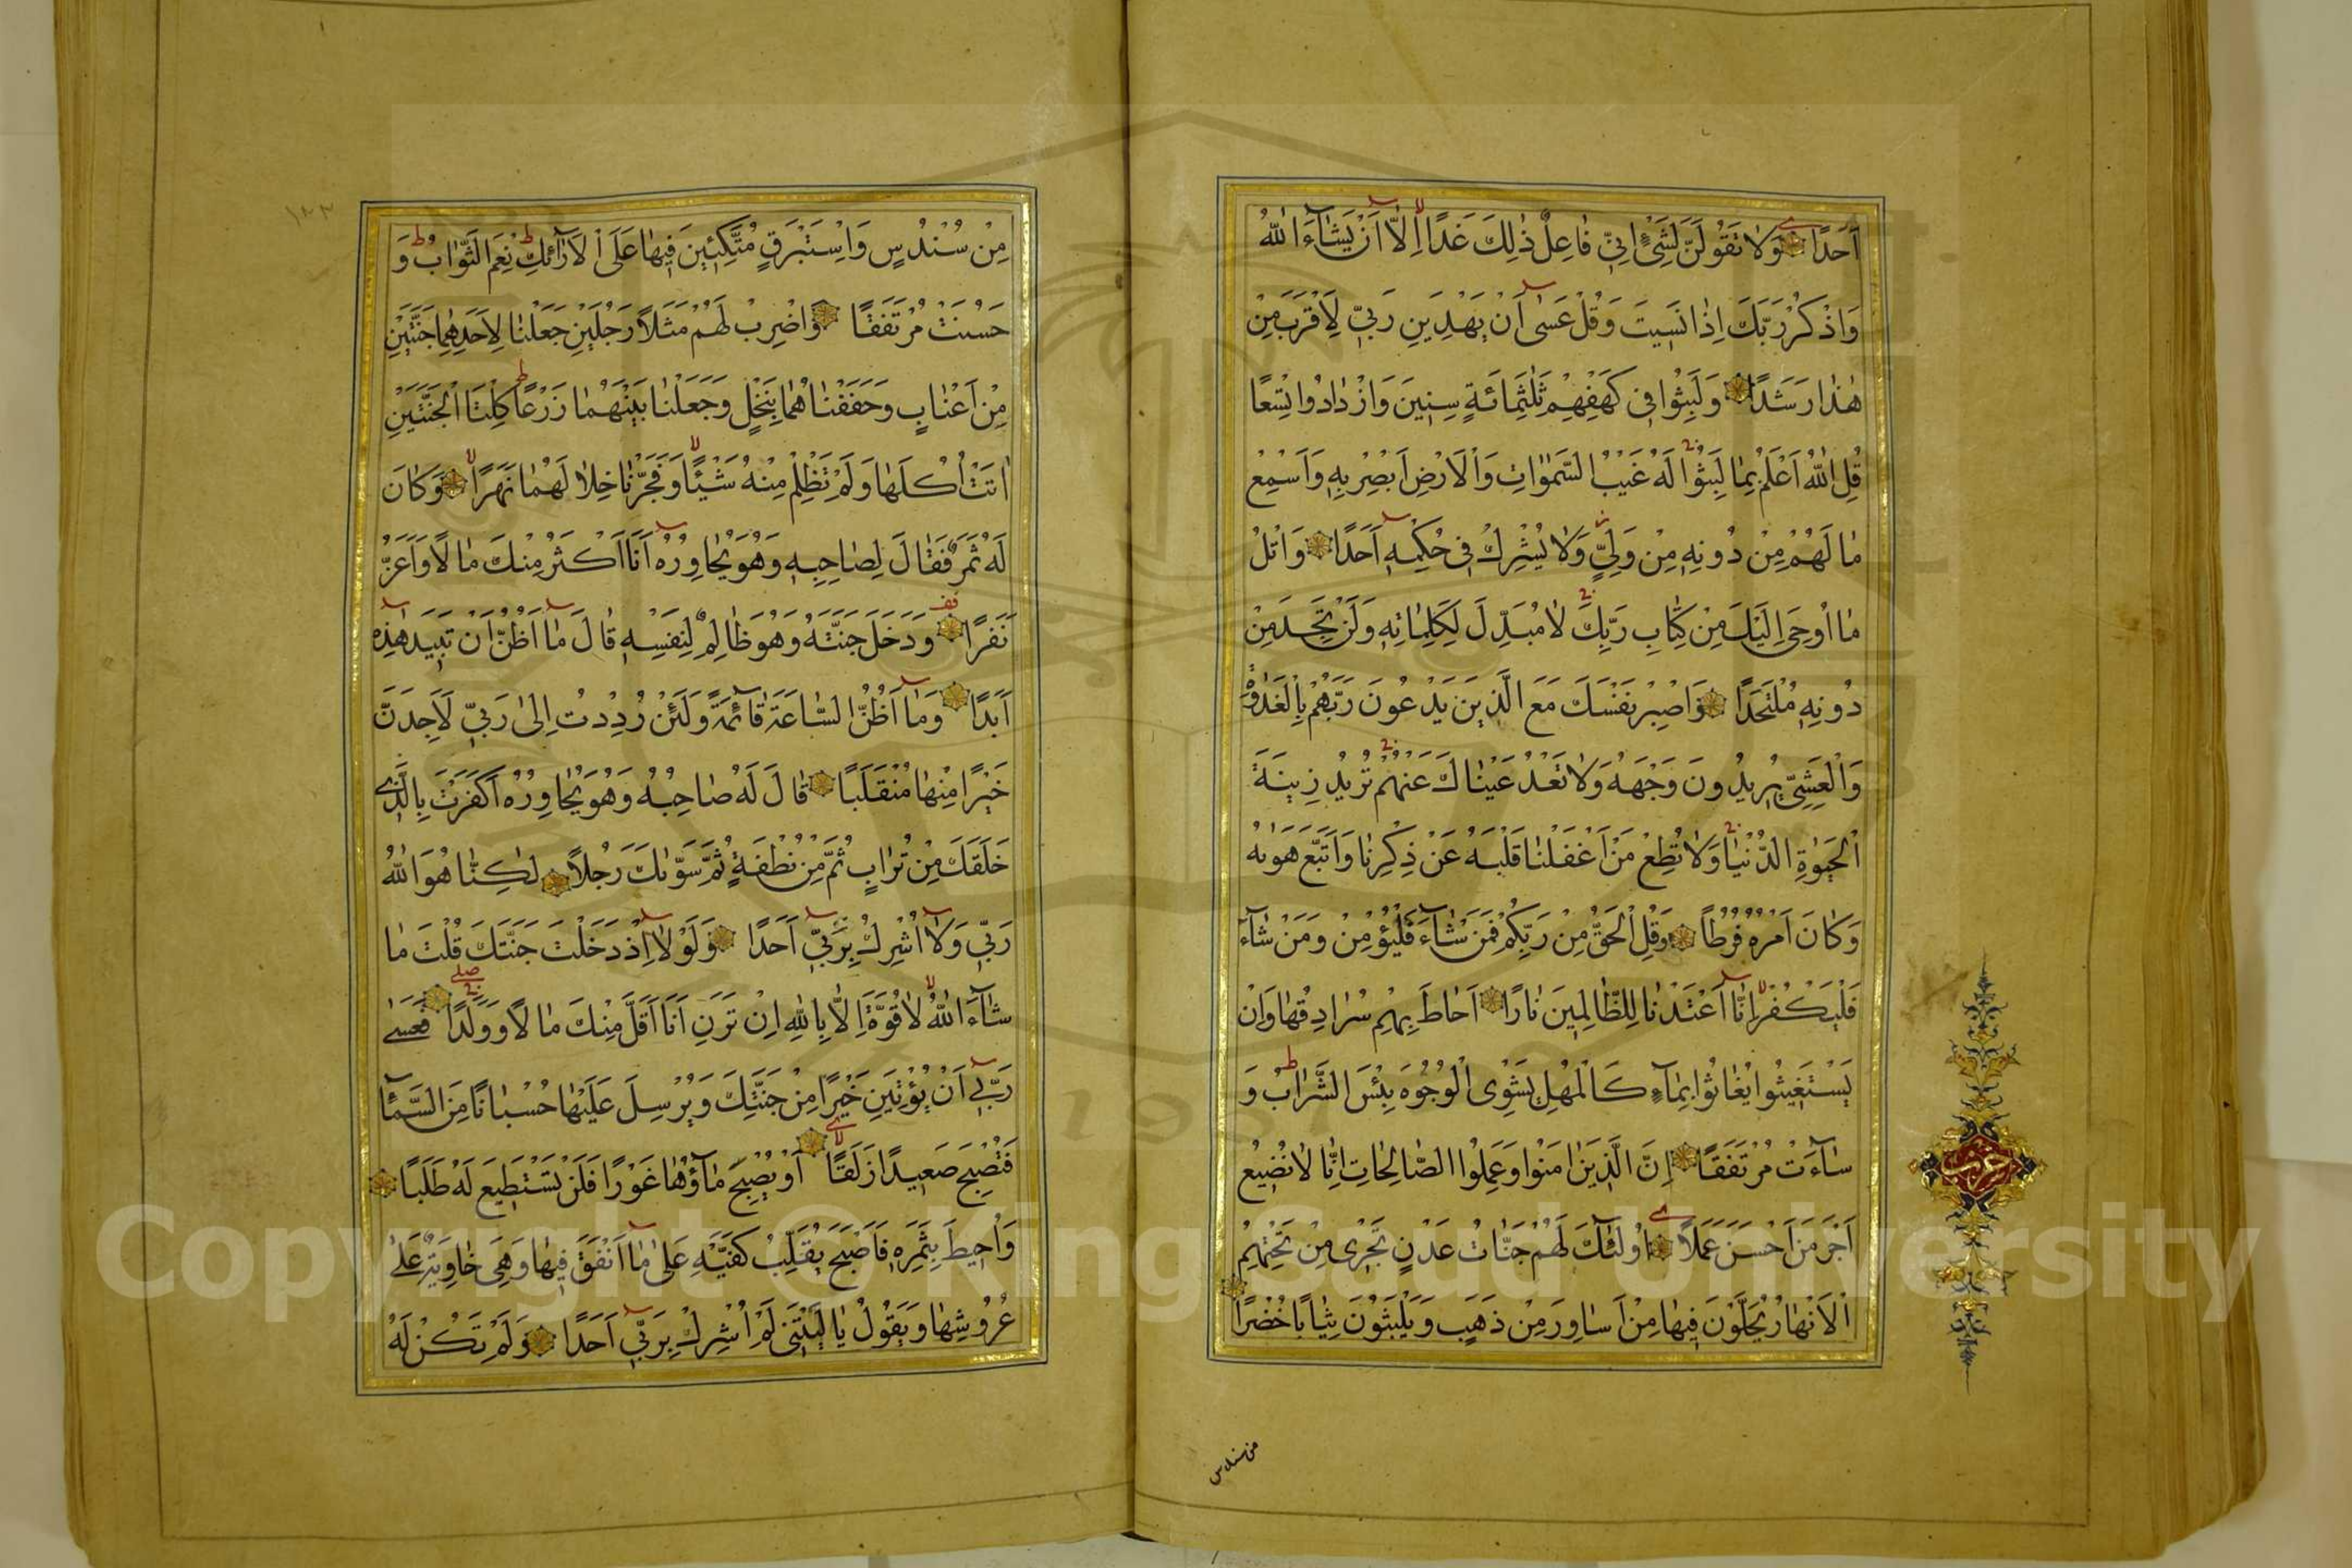 اَحَدًا وَلَا تَقُولَنَّ لِشَيْءٍ اِنِّي فَاعِلٌ ذٰلِكَ غَدًا اِلَّا اَنْ يَشَآءَ اللّٰهُ
وَاذْكُرْ رَبَّكَ اِذَا نَسِيتَ وَقُلْ عَسٰى اَنْ يَهْدِيَنِ رَبِّي لِاَقْرَبَ مِنْ
هٰذَا رَشَدًا وَلَبِثُوا فِي كَهْفِهِمْ ثَلٰثَمِائَةٍ سِنِينَ وَازْدَادُوا تِسْعًا
قُلِ اللّٰهُ اَعْلَمُ بِمَا لَبِثُوا لَهُ غَيْبُ السَّمٰوَاتِ وَالْاَرْضِ اَبْصِرْ بِهِ وَاَسْمِعْ
مَا لَهُمْ مِنْ دُونِهِ مِنْ وَلِيٍّ وَلَا يُشْرِكُ فِي حُكْمِهِ اَحَدًا وَاتْلُ
مَا اُوحِيَ اِلَيْكَ مِنْ كِتَابِ رَبِّكَ لَا مُبَدِّلَ لِكَلِمَاتِهِ وَلَنْ تَجِدَ مِنْ
دُونِهِ مُلْتَحَدًا وَاصْبِرْ نَفْسَكَ مَعَ الَّذِينَ يَدْعُونَ رَبَّهُمْ بِالْغَدٰوةِ
وَالْعَشِيِّ يُرِيدُونَ وَجْهَهُ وَلَا تَعْدُ عَيْنَاكَ عَنْهُمْ تُرِيدُ زِينَةَ
الْحَيٰوةِ الدُّنْيَا وَلَا تُطِعْ مَنْ اَغْفَلْنَا قَلْبَهُ عَنْ ذِكْرِنَا وَاتَّبَعَ هَوٰيهُ
وَكَانَ اَمْرُهُ فُرُطًا وَقُلِ الْحَقُّ مِنْ رَبِّكُمْ فَمَنْ شَآءَ فَلْيُؤْمِنْ وَمَنْ شَآءَ
فَلْيَكْفُرْ اِنَّا اَعْتَدْنَا لِلظَّالِمِينَ نَارًا اَحَاطَ بِهِمْ سُرَادِقُهَا وَاِنْ
يَسْتَغِيثُوا يُغَاثُوا بِمَآءٍ كَالْمُهْلِ يَشْوِي الْوُجُوهَ بِئْسَ الشَّرَابُ وَ
سَآءَتْ مُرْتَفَقًا اِنَّ الَّذِينَ اٰمَنُوا وَعَمِلُوا الصَّالِحَاتِ اِنَّا لَا نُضِيعُ
اَجْرَ مَنْ اَحْسَنَ عَمَلًا اُولٰٓئِكَ لَهُمْ جَنَّاتُ عَدْنٍ تَجْرِي مِنْ تَحْتِهِمُ
الْاَنْهَارُ يُحَلَّوْنَ فِيهَا مِنْ اَسَاوِرَ مِنْ ذَهَبٍ وَيَلْبَسُونَ ثِيَابًا خُضْرًا
من سندس
حزب
١٣٣
مِنْ سُنْدُسٍ وَاِسْتَبْرَقٍ مُتَّكِئِينَ فِيهَا عَلَى الْاَرَآئِكِ نِعْمَ الثَّوَابُ وَ
حَسُنَتْ مُرْتَفَقًا وَاضْرِبْ لَهُمْ مَثَلًا رَجُلَيْنِ جَعَلْنَا لِاَحَدِهِمَا جَنَّتَيْنِ
مِنْ اَعْنَابٍ وَحَفَفْنَاهُمَا بِنَخْلٍ وَجَعَلْنَا بَيْنَهُمَا زَرْعًا كِلْتَا الْجَنَّتَيْنِ
اٰتَتْ اُكُلَهَا وَلَمْ تَظْلِمْ مِنْهُ شَيْئًا وَفَجَّرْنَا خِلَالَهُمَا نَهَرًا وَكَانَ
لَهُ ثَمَرٌ فَقَالَ لِصَاحِبِهِ وَهُوَ يُحَاوِرُهُ اَنَا اَكْثَرُ مِنْكَ مَالًا وَاَعَزُّ
نَفَرًا وَدَخَلَ جَنَّتَهُ وَهُوَ ظَالِمٌ لِنَفْسِهِ قَالَ مَا اَظُنُّ اَنْ تَبِيدَ هٰذِهِ
اَبَدًا وَمَا اَظُنُّ السَّاعَةَ قَآئِمَةً وَلَئِنْ رُدِدْتُ اِلٰى رَبِّي لَاَجِدَنَّ
خَيْرًا مِنْهَا مُنْقَلَبًا قَالَ لَهُ صَاحِبُهُ وَهُوَ يُحَاوِرُهُ اَكَفَرْتَ بِالَّذِي
خَلَقَكَ مِنْ تُرَابٍ ثُمَّ مِنْ نُطْفَةٍ ثُمَّ سَوّٰيكَ رَجُلًا لٰكِنَّا هُوَ اللّٰهُ
رَبِّي وَلَا اُشْرِكُ بِرَبِّي اَحَدًا وَلَوْلَا اِذْ دَخَلْتَ جَنَّتَكَ قُلْتَ مَا
شَآءَ اللّٰهُ لَا قُوَّةَ اِلَّا بِاللّٰهِ اِنْ تَرَنِ اَنَا اَقَلَّ مِنْكَ مَالًا وَوَلَدًا فَعَسٰى
رَبِّي اَنْ يُؤْتِيَنِ خَيْرًا مِنْ جَنَّتِكَ وَيُرْسِلَ عَلَيْهَا حُسْبَانًا مِنَ السَّمَآءِ
فَتُصْبِحَ صَعِيدًا زَلَقًا اَوْ يُصْبِحَ مَآؤُهَا غَوْرًا فَلَنْ تَسْتَطِيعَ لَهُ طَلَبًا
وَاُحِيطَ بِثَمَرِهِ فَاَصْبَحَ يُقَلِّبُ كَفَّيْهِ عَلٰى مَا اَنْفَقَ فِيهَا وَهِيَ خَاوِيَةٌ عَلٰى
عُرُوشِهَا وَيَقُولُ يَا لَيْتَنِي لَمْ اُشْرِكْ بِرَبِّي اَحَدًا وَلَمْ تَكُنْ لَهُ
Copyright © King Saud University
1957